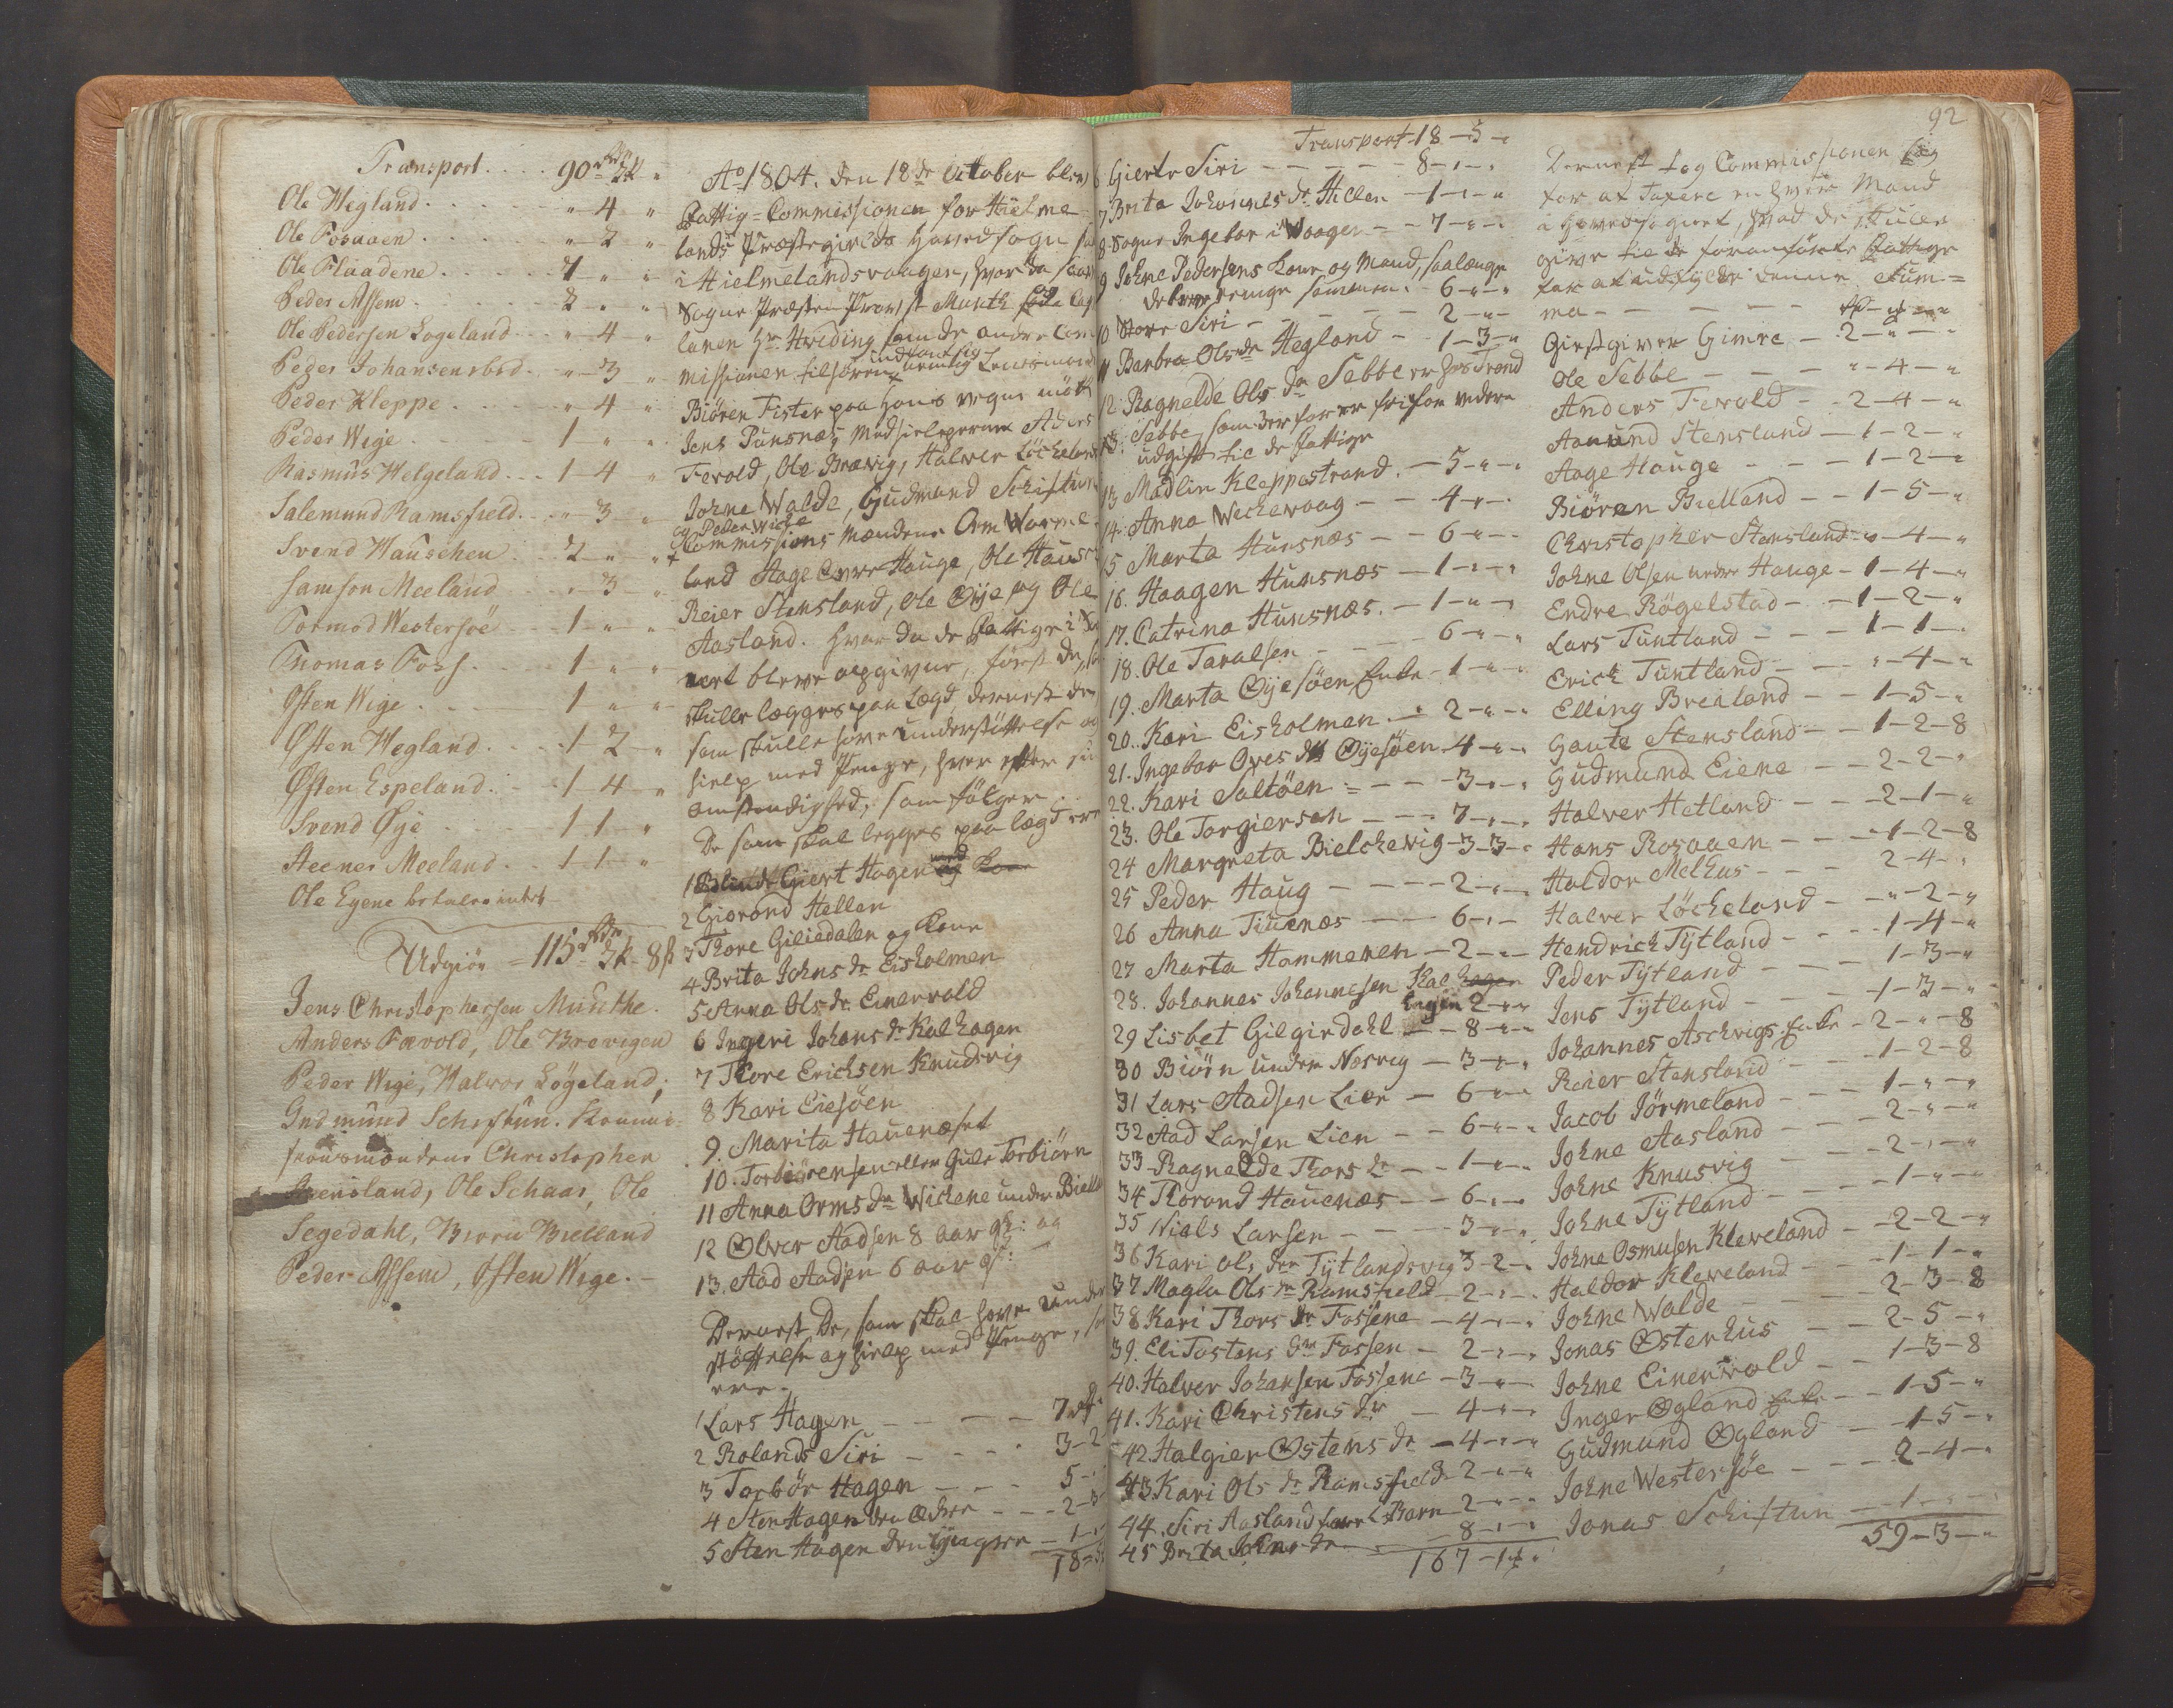 Transport . . . . 90 rdr 3 ₰ "
Ole Hegland . . . . . " 4 "
Ole Fosaaen . . . . . " 2 "
Ole Flaadene . . . . . 1 " "
Peder Assem . . . . . 2 " "
Ole Pedersen Logeland . . " 4 "
Peder Johansensbod . . " 3 "
Peder Kleppe . . . . . " 4 "
Peder Wige . . . . . 1 " "
Rasmus Helgeland . . . 1 - 4 "
Salemund Ramsfield . . " 3 "
Svend Hauschen . . 2 " "
Samson Meeland . . " 3 "
Tormod Westersöe . . 1 - " "
Thomas Foss . . . . 1 " "
Østen Wige . . . . 1 " "
Østen Hegland . . . 1 2 "
Østen Espeland . . 1 4 "
Svend Øye . . . . 1 1 "
Steener Meeland . . 1 1 "
Ole Egene betaler intet
Udgiör = 115 rdr 3 ₰ 8 ß
Jens Christophersen Munthe.
Anders Fævold, Ole Brevigen
Peder Wige, Halvor Løgeland,
Gudmund Schiftun. Kommis-
sionsmændene Christopher
Stensland, Ole Schaar, Ole
Segedahl, Biørn Bielland
Peder Assem, Østen Wige.
Ao 1804. den 18de October blev
Fattig-Commissionen for Hielme-
lands Præstegields Hovedsogn
i Hielmelandsvaagen, hvor da
Sogne Præsten Provst Munth
Hr. Heiding som de andre Com
missionen tilhören nemlig Lensmand
Biören Fister paa hans vegne mött
Jens Punsnæs, Medhielperne Aders
Fevold, Ole Brævig, Halver Löcheland
Johne Walde, Gudmund Schiftun
og Peder Wiche
Commissions Mændene Orm Warme-
land Aage Øvre Hauge, Ole Hausc
Reier Stensland, Ole Øije og Ole
Aasland. hvor da de Fattige i
vert bleve opgivne, först de
skulle lægges paa Lægd, dernest de
som skulle have Understöttelse og
hielp med Penge, hver efter sin
omstendighed, som fölger.
De som skal legges paa lægd ere
1 Blinde Giert Hagen med Kone
2 Giorond Hellen
3 Thore Giliedalen og Kone
4 Brita Johns dr Eisholmen
5 Anna Ols dr Einervold
6 Ingeri Johans dr Kalhagen
7 Thore Erichsen Knudsvig
8 Kari Eiesöen
9. Marita Hauenæset
10. Torbiörensen eller Gule Torbiörn
11 Anna Orms dr Wichene under Biella
12 Ølver Aadsen 8 aar gl: og
13. Aad Aadsen 6 aar gl:
Dernest De, som skal have Under
stöttelse og hielp med Penge,
ere.
1 Lars Hagen - - - - 7
2 Rolands Siri - - - 3-2
3 Torbör Hagen - - - 5-
4 Sten Hagen den Ældre - - 2-3
5 Sten Hagen den Yngere - 1-
18-5
92
Transport 18-5-"
6 Gierte Siri - - - - - 8-"-"
7 Brita Johannes dr Hellen - 1-"-"
8 Sogne Ingebor i Waagen - - 7-"-"
9 Johne Pedersens Kone og Mand, saalænge
de ere sammen. 6-"-"
10 Store Siri - - - - - 2-"-"
11 Barbra Ols dr Hegland - 1-3-"
12 Ragnelde Ols dr Sebbe er hos Trond
Sebbe, som derfor er fri for videre
udgift til de Fattige
13 Madlin Kleppestrand. - 5-"-"
14. Anna Wechevaag - - 4-"-"
15 Marta Hunsnæs - - 6-"-"
16. Haagen Hunsnæs - 1-"-"
17. Catrina Hunsnæs. - 1-"-"
18. Ole Taralsen - - - 6-"-"
19. Marta Øijesöen Enke - 1-"-"
20. Kari Eisholmen - 2-"-"
21. Ingebor Oves dr Øyesöen - 4-"-"
22. Kari Saltöen - - - 3-"-"
23. Ole Torgiersen - - - 7-"-"
24 Margreta Bielchevig - 3-3-"
25 Peder Haug - - - - 2-"-"
26 Anna Tiuenæs - - - 6-"-"
27 Marta Hammeren - 2-"-"
28. Johannes Johannesen Kal hagen
hagen 2-"-"
29 Lisbet Gilgirdahl - - 8-"-"
30 Biörn under Nesvig - 3-"-"
31 Lars Aadsen Lien - 6-"-"
32 Aad Larsen Lien - - 6-"-"
33 Ragnelde Thors dr - - 1-"-"
34 Thorond Hauenæs - - 6-"-"
35 Niels Larsen - - - 3-"-"
36 Kari Ols dr Tÿtlandsvig 3-2-"
37 Magla Ols dr Ramsfield - 2-"-"
38 Kari Thors dr Fossene - 4-"-"
39. Eli Tostens dr Fossen - 2-"-"
40. Halver Johansen Fossene - 3-"-"
41. Kari Christens dr - 4-"-"
42. Halgier Østens dr - 4-"-"
43 Kari Ols dr Ramsfield 2-"-"
44. Siri Aasland Barn 2-"-"
45 Brita Johns dr - 8-"-"
167-1-"
Dernest tog Commissionen sig
for at Taxere en hver Mand
i Hovedsognet, hvad de skulle
give til de foranförte Fattige
for at udfylde denne Sum=
ma - - - -
Giestgiver Gimre - 2-"-"
Ole Sebbe - - - "-4-"
Anders Fevold - - 2-4-"
Aanund Stensland - 1-2-"
Aage Hauge - - - 1-2-"
Biören Bielland - - 1-5-"
Christopher Stensland - "-4-"
Johne Olsen nedre Hauge - 1-4-"
Endre Rögelstad - - 1-2-"
Lars Tuntland - - - 1-1-"
Erich Tuntland - - - "-4-"
Elling Brealand - - 1-5-"
Gaute Stensland - - 1-2-8
Gudmund Eiene - - 2-2-"
Halver Hetland - - 2-1-"
Hans Rosaaen - - - 1-2-8
Haldor Melhus - - - 2-4-"
Halver Löcheland - - "-2-"
Hendrich Tÿtland - - - 1-4-"
Peder Tÿtland - - - 1-3-"
Jens Tÿtland - - - 1-3-"
Johannes Aschvigs Enke - 2-"-8
Reier Stensland - - 1-2-8
Jacob Jörmeland - - 1-"-"
Johne Aasland - - - 2-"-"
Johne Knusvig - - - 2-"-"
Johne Tÿtland - - - 1-"-"
Johne Osmusen Kleveland - 2-2-"
Haldor Kleveland - - 1-1-"
Johne Walde - - - 2-3-8
Jonas Østerhus - - 2-5-"
Johne Einervold - - 1-3-8
Inger Øgland Enke - - 1-5-"
Gudmund Øgland - - 1-5-"
Johne Westersöe - - - 2-4-"
Jonas Schiftun - - 1-"-"
59-3-"